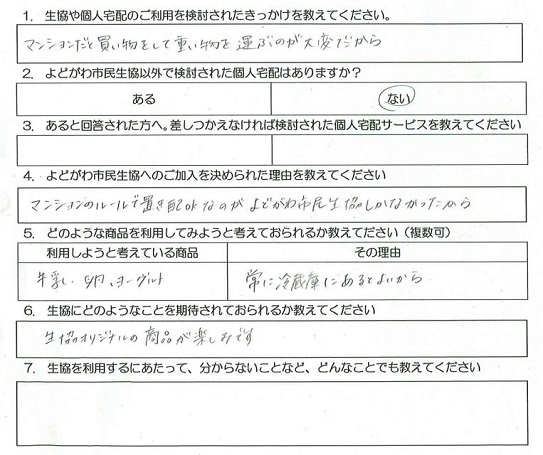 1. 生協や個人宅配のご利用を検討されたきっかけを教えてください。
マンションだと買い物をして重い物を運ぶのが大変だから
2. よどがわ市民生協以外で検討された個人宅配はありますか?
ある ない
3. あると回答された方へ。差しつかえなければ検討された個人宅配サービスを教えてください
4. よどがわ市民生協へのご加入を決められた理由を教えてください
マンションのルールで置き配OKなのがよどがわ市民生協しかなかったから
5. どのような商品を利用してみようと考えておられるか教えてださい(複数可)
利用しようと考えている商品 その理由
牛乳、卵、ヨーグルト 常に冷蔵庫にあるとよいから
6. 生協にどのようなことを期待されておられるか教えてください
生協オリジナルの商品が楽しみです
7. 生協を利用するにあたって、分からないことなど、どんなことでも教えてください